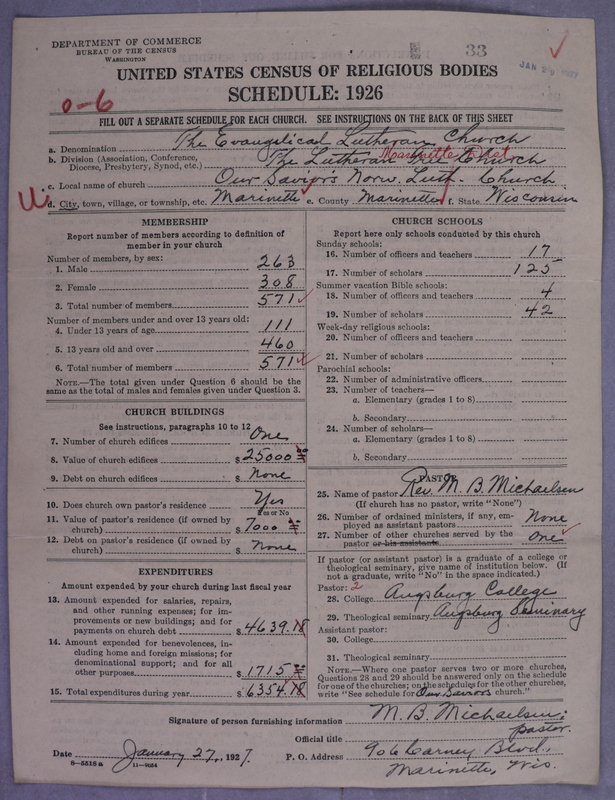 DEPARTMENT OF COMMERCE
BUREAU OF THE CENSUS
WASHINGTON
33
JAN 29 1927
UNITED STATES CENSUS OF RELIGIOUS BODIES
SCHEDULE: 1926
0-6
FILL OUT A SEPARATE SCHEDULE FOR EACH CHURCH. SEE INSTRUCTIONS ON THE BACK OF THIS SHEET
a. Denomination The Evangelical Lutheran Church
b. Division (Association, Conference, Diocese, Presbytery, Synod, etc.) The Lutheran Free Church
Marinette Dist
c. Local name of church Our Savior's Norw. Luth. Church
d. City, town, village, or township, etc. Marinette e. County Marinette f. State Wisconsin
MEMBERSHIP
Report number of members according to definition of
member in your church
Number of members, by sex:
1. Male 263
2. Female 308
3. Total number of members 571
Number of members under and over 13 years old:
4. Under 13 years of age 111
5. 13 years old and over 460
6. Total number of members 571
NOTE.—The total given under Question 6 should be the
same as the total of males and females given under Question 3.
CHURCH BUILDINGS
See instructions, paragraphs 10 to 12
7. Number of church edifices One
8. Value of church edifices $ 25000
9. Debt on church edifices $ None
10. Does church own pastor's residence Yes
Yes or No
11. Value of pastor's residence (if owned by
church) $ 7000
12. Debt on pastor's residence (if owned by
church) $ None
EXPENDITURES
Amount expended by your church during last fiscal year
13. Amount expended for salaries, repairs,
and other running expenses; for im-
provements or new buildings; and for
payments on church debt $ 4639.18
14. Amount expended for benevolences, in-
cluding home and foreign missions; for
denominational support; and for all
other purposes $ 1715
15. Total expenditures during year $ 6354.18
CHURCH SCHOOLS
Report here only schools conducted by this church
Sunday schools:
16. Number of officers and teachers 17
17. Number of scholars 125
Summer vacation Bible schools:
18. Number of officers and teachers 4
19. Number of scholars 42
Week-day religious schools:
20. Number of officers and teachers
21. Number of scholars
Parochial schools:
22. Number of administrative officers
23. Number of teachers—
a. Elementary (grades 1 to 8)
b. Secondary
24. Number of scholars—
a. Elementary (grades 1 to 8)
b. Secondary
PASTOR
25. Name of pastor Rev. M. B. Michaelsen
(If church has no pastor, write "None")
26. Number of ordained ministers, if any, em-
ployed as assistant pastors None
27. Number of other churches served by the
pastor or his assistants One
If pastor (or assistant pastor) is a graduate of a college or
theological seminary, give name of institution below. (If
not a graduate, write "No" in the space indicated.)
Pastor: 2
28. College Augsburg College
29. Theological seminary Augsburg Seminary
Assistant pastor:
30. College
31. Theological seminary
NOTE.—Where one pastor serves two or more churches,
Questions 28 and 29 should be answered only on the schedule
for one of the churches; on the schedules for the other churches,
write "See schedule for Our Saviors church."
Signature of person furnishing information M. B. Michaelsen;
Official title pastor.
Date January 27, 1927. P. O. Address 906 Carney Blvd.,
8-5518a 11-9054
Marinette, Wis.